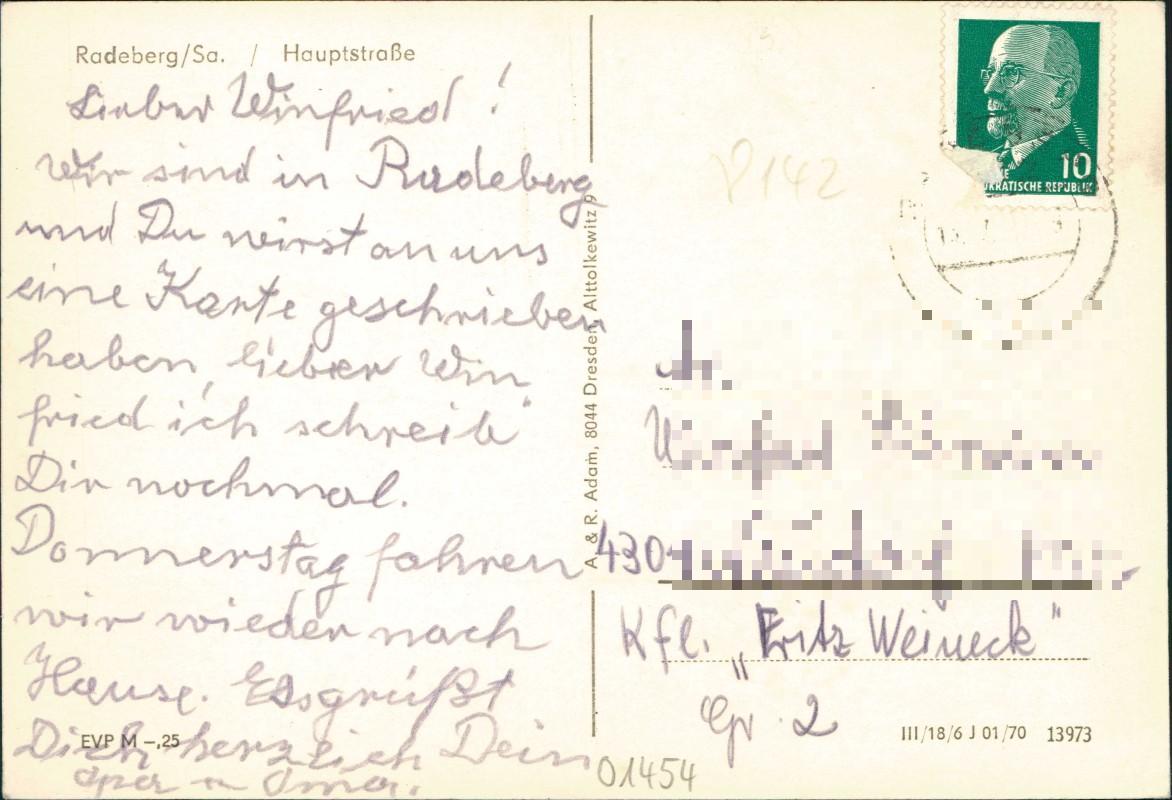 Radeberg/Sa. / Hauptstraße
Lieber Winfried!
Wir sind in Radeberg
und Du wirst an uns
eine Karte geschrieben
haben, lieber Win
fried ich schreib
Dir nochmal.
Donnerstag fahren
wir wieder nach
Hause. Es grüßt
Dich herzlich Dein
Opa u Oma.
EVP M –,25
A. & R. Adam, 8044 Dresden, Alttolkewitz 9
P142
10
KRATISCHE REPUBLIK
430
Kfl. „Fritz Weineck"
Gr. 2
III/18/6 J 01/70 13973
01454